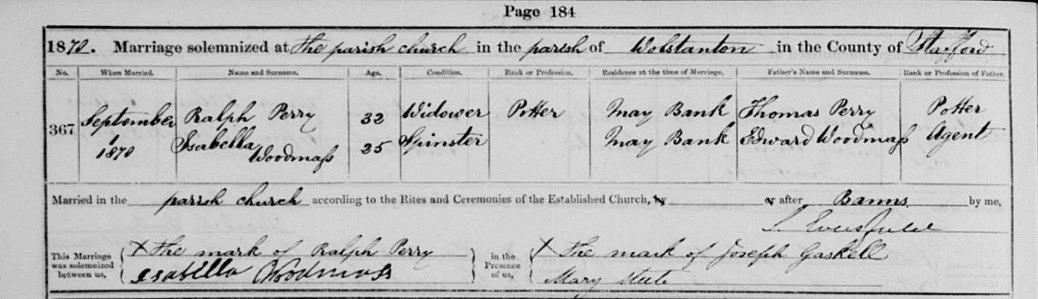 Page 184
1870. Marriage solemnized at the parish church in the parish of Wolstanton in the County of Stafford
No. When Married. Name and Surname. Age. Condition. Rank or Profession. Residence at the time of Marriage. Father's Name and Surname. Rank or Profession of Father.
367 September Ralph Perry 32 Widower Potter May Bank Thomas Perry Potter
1870 Isabella Woodmaſs 25 Spinster May Bank Edward Woodmaſs Agent
Married in the parish church according to the Rites and Ceremonies of the Established Church, by or after Banns by me,
This Marriage was solemnized between us, X The mark of Ralph Perry in the Presence of us, X The mark of Joseph Gaskell
Isabella Woodmass Mary